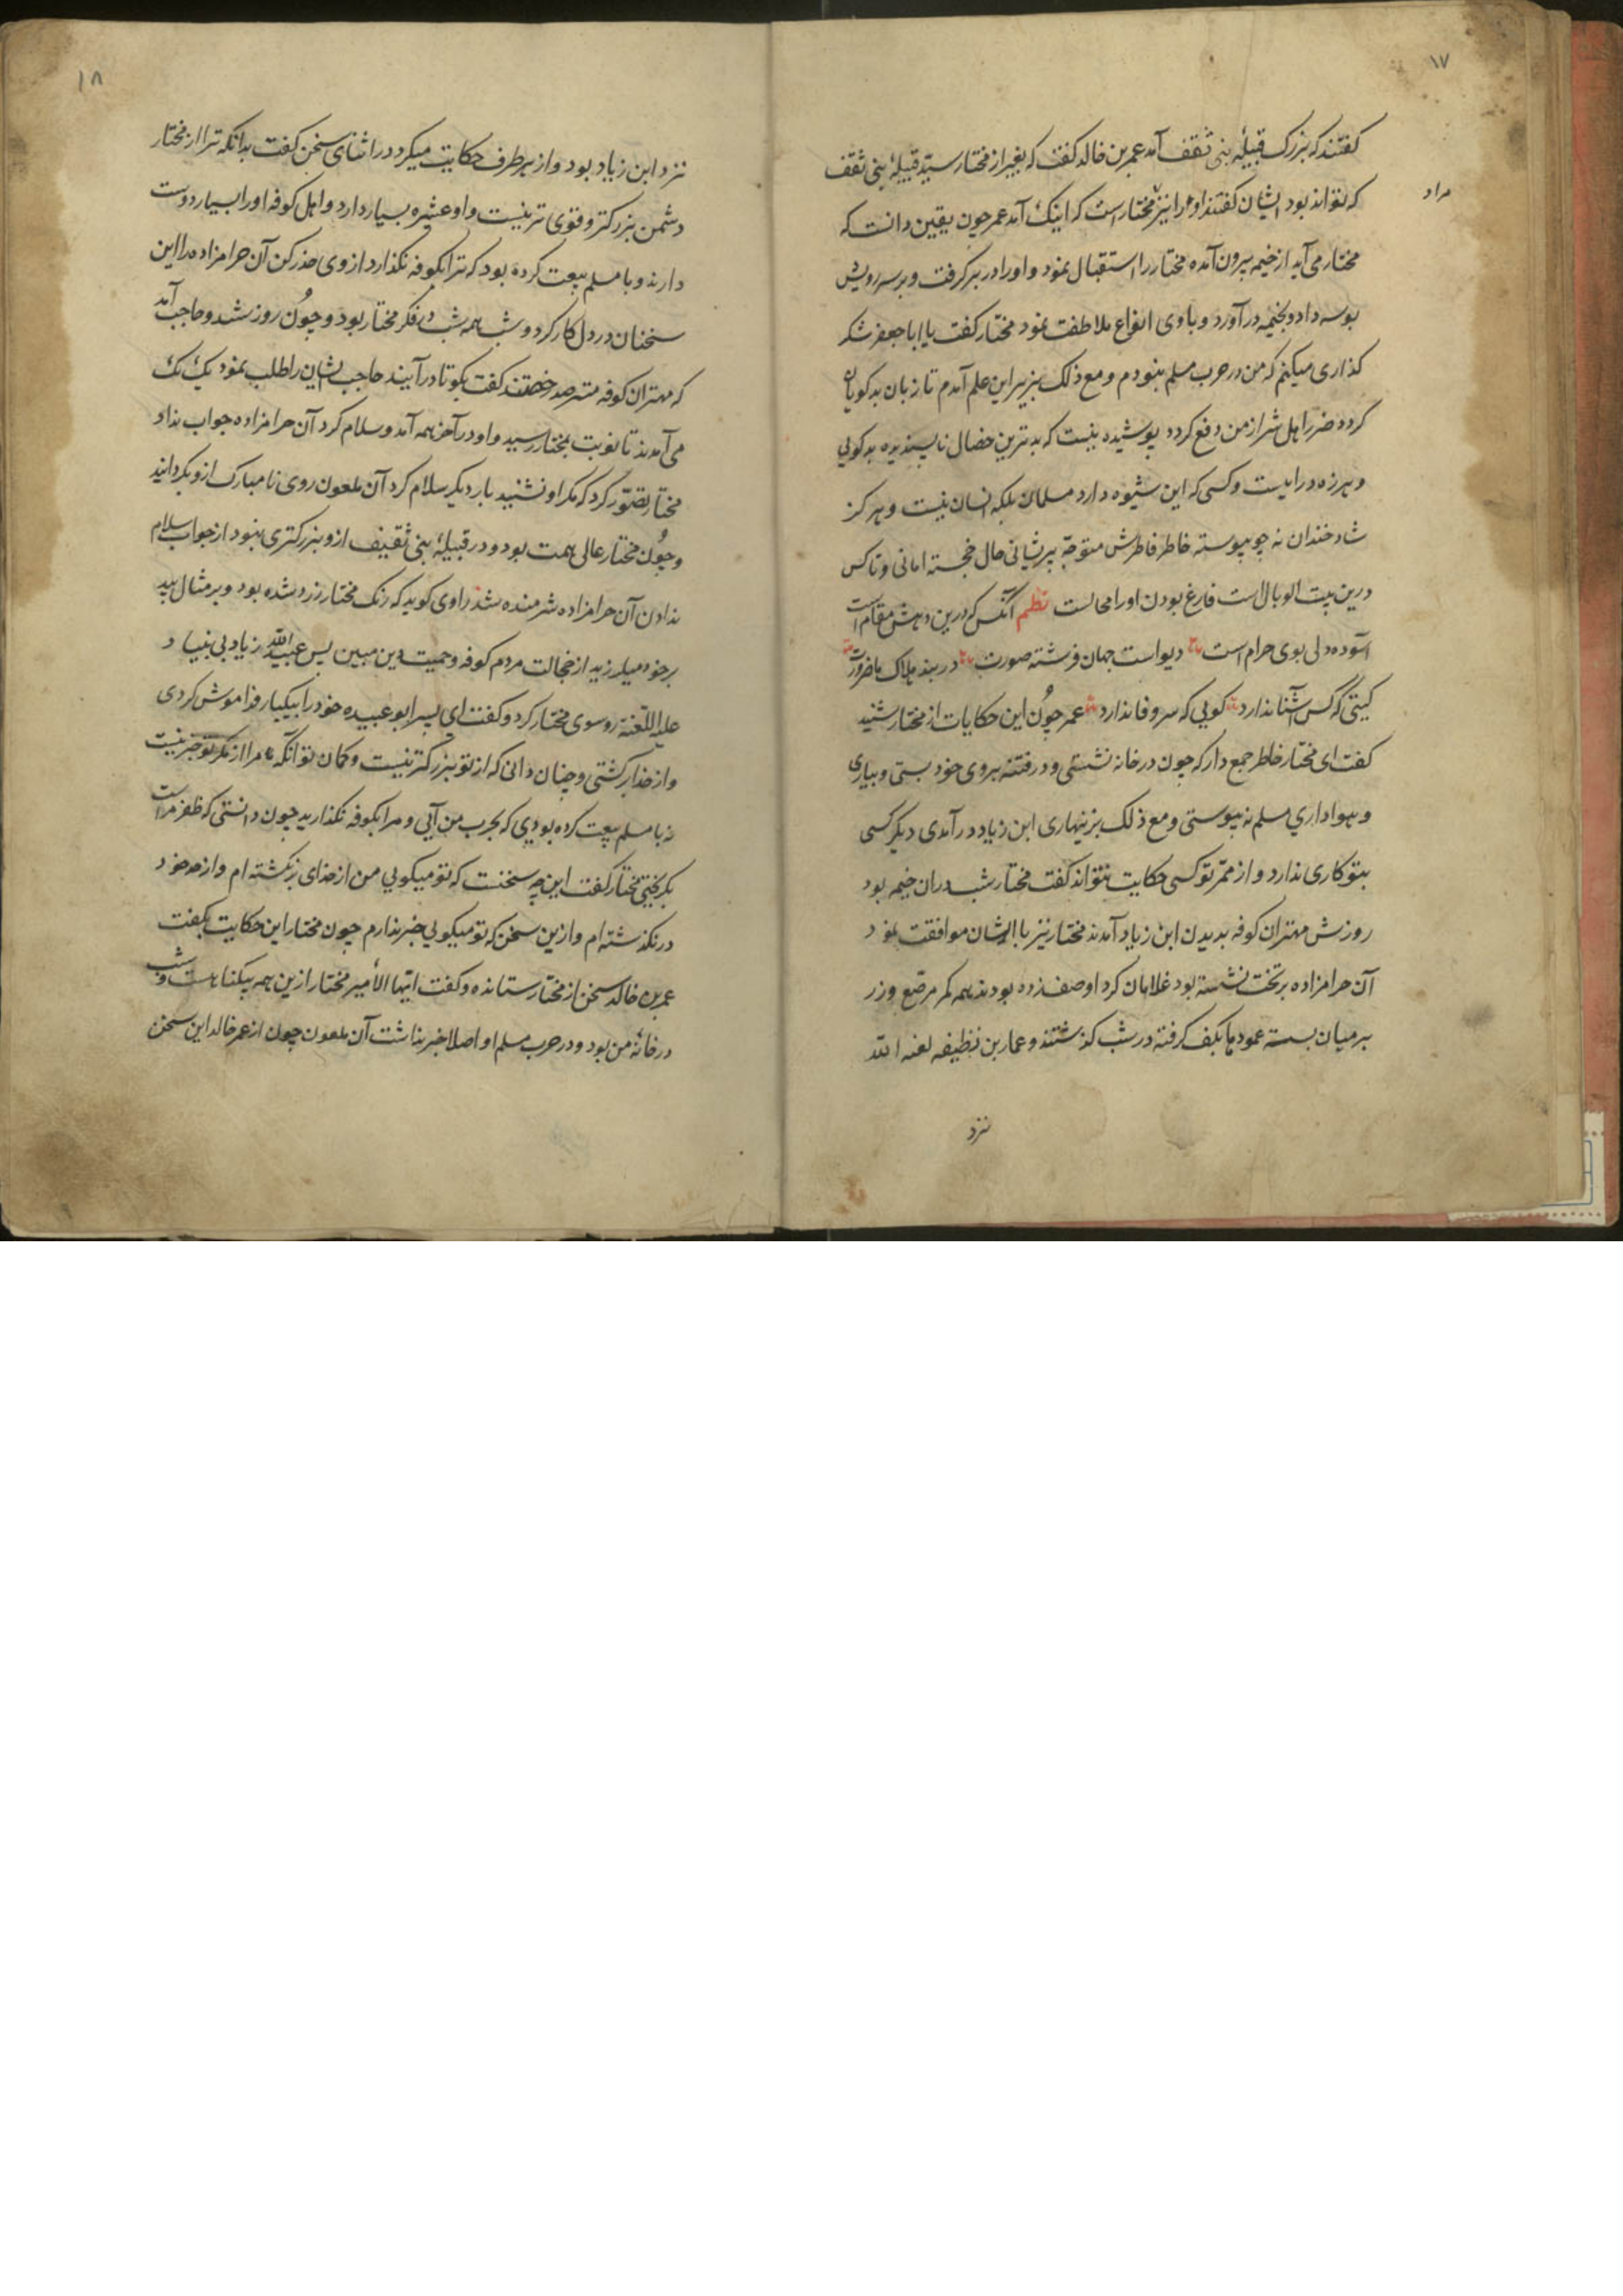 ۱۷
کفتند که بزرک قبیلهٔ بنی ثقف آمد عمر بن خالد کفت که بغیر از مختار سید قبیلهٔ بنی ثقف
که تواند بود ایشان کفتند او را نیز مختار است که اینک آمد عمر چون یقین دانست که
مراد
مختار می آید از خیمه بیرون آمده مختار را استقبال نمود و او را در بر کرفت و بر سر رویش
بوسه داد و بخیمه درآورد و با وی انواع ملاطفت نمود مختار کفت یا ابا جعفر شکر
کذاری میکنم که من در حرب مسلم نبودم و مع ذلک بزیر این علم آمدم تا زبان بدکویان
کرده ضرر اهل شر از من دفع کردد پوشیده نیست که بدترین خصال ناپسندیده بدکویی
و هرزه دراییست و کسی که این شیوه دارد مسلمان بلکه انسان نیست و هرکز
شاد خندان نه چو پیوسته خاطر فاطرش متوجه پریشانی حال خجسته امانی و تا کس
درین بیت الوبال است فارغ بودن او را محالست نظم آنکس که درین دهش مقام است
آسوده دلی بوی حرام است دیو است جهان فرشته صورت در بند هلاک ما ضرورت
کیتی که کس آشنا ندارد کویی که سر وفا ندارد عمر چون این حکایات از مختار شنید
کفت ای مختار خاطر جمع دار که چون در خانه نشستی و در فتنه بروی خود بستی و بیاری
و هواداری مسلم نه پیوستی و مع ذلک بزینهاری ابن زیاد درآمدی دیکر کسی
بتو کاری ندارد و از ممر تو کسی حکایت نتواند کفت مختار شب دران خیمه بود
روزش مهتران کوفه بدیدن ابن زیاد آمدند مختار نیز با ایشان موافقت نمود
آن حرامزاده بر تخت نشسته بود غلامان کرد او صف زده بودند همه کمر مرصع وزر
بر میان بسته عمودها بکف کرفته در شب کذشتند و عمار بن نظیفه لعنه الله
نزد
۱۸
نزد ابن زیاد بود و از هر طرف حکایت میکرد در اثنای سخن کفت بدانکه ترا از مختار
دشمن بزرکتر و قوی تر نیست و او عشیره بسیار دارد و اهل کوفه او را بسیار دوست
دارند و با مسلم بیعت کرده بود که ترا بکوفه نکذارد از وی حذر کن آن حرامزاده را این
سخنان در دل کار کرد و شب همه شب در فکر مختار بود و چون روز شد و حاجب آمد
که مهتران کوفه مترصد رخصتند کفت بکو تا درآیند حاجب ایشان را طلب نمود یک یک
می آمدند تا نوبت بمختار رسید و او در آخر همه آمد و سلام کرد آن حرامزاده جواب نداد
مختار تصور کرد که مکر او نشنید بار دیکر سلام کرد آن ملعون روی نامبارک ازو بکردانید
و چون مختار عالی همت بود و در قبیلهٔ بنی ثقیف ازو بزرکتری نبود از جواب سلام
ندادن آن حرامزاده شرمنده شد راوی کوید که رنک مختار زرد شده بود و بر مثال بید
بر خود میلرزید از خجالت مردم کوفه و حمیت دین مبین پس عبید الله زیاد بی بنیاد
علیه اللعنة روسوی مختار کرد و کفت ای پسر ابو عبیده خود را بیکبار فراموش کردی
و از خدا برکشتی و چنان دانی که از تو بزرکتر نیست و کمان تو آنکه مرا از مکر تو خبر نیست
نه با مسلم بیعت کرده بودی که بحرب من آیی و مرا بکوفه نکذارید چون دانستی که ظفر مراست
بکریختی مختار کفت این چه سخنست که تو میکویی من از خدای برنکشته ام و از حد خود
درنکذشته ام و ازین سخن که تو میکویی خبر ندارم چون مختار این حکایت بکفت
عمر بن خالد سخن از مختار ستانده و کفت ایها الأمیر مختار ازین همه بیکناهست و شب
در خانهٔ من بود و در حرب مسلم او اصلا خبر نداشت آن ملعون چون از عمر خالد این سخن